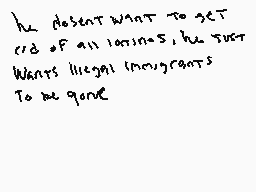 he dosent want to get
rid of all latinos, he just
wants illegal immigrants
to be gone